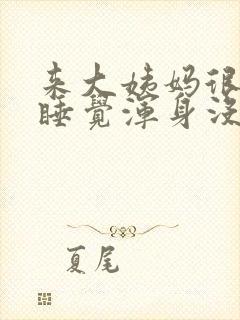 来大姨妈很
睡覺渾身没
夏尾